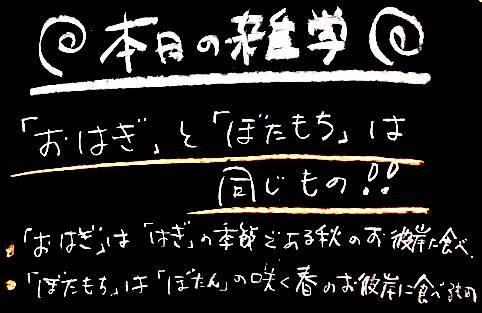 本日の雑学
「おはぎ」と「ぼたもち」は
同じもの!!
・「おはぎ」は「はぎ」の季節である秋のお彼岸に食べ、
・「ぼたもち」は「ぼたん」の咲く春のお彼岸に食べるもの